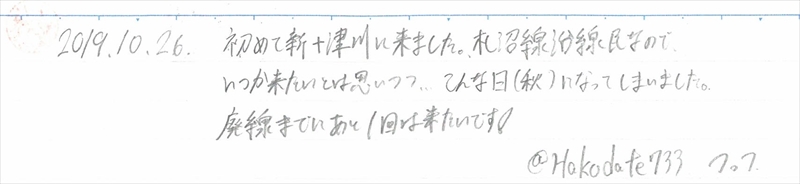 2019.10.26. 初めて新十津川に来ました。札沼線沿線民なので、
いつか来たいとは思いつつ… こんな日(秋)になってしまいました。
廃線までにあと1回は来たいです!
@Hakodate733 フッフ